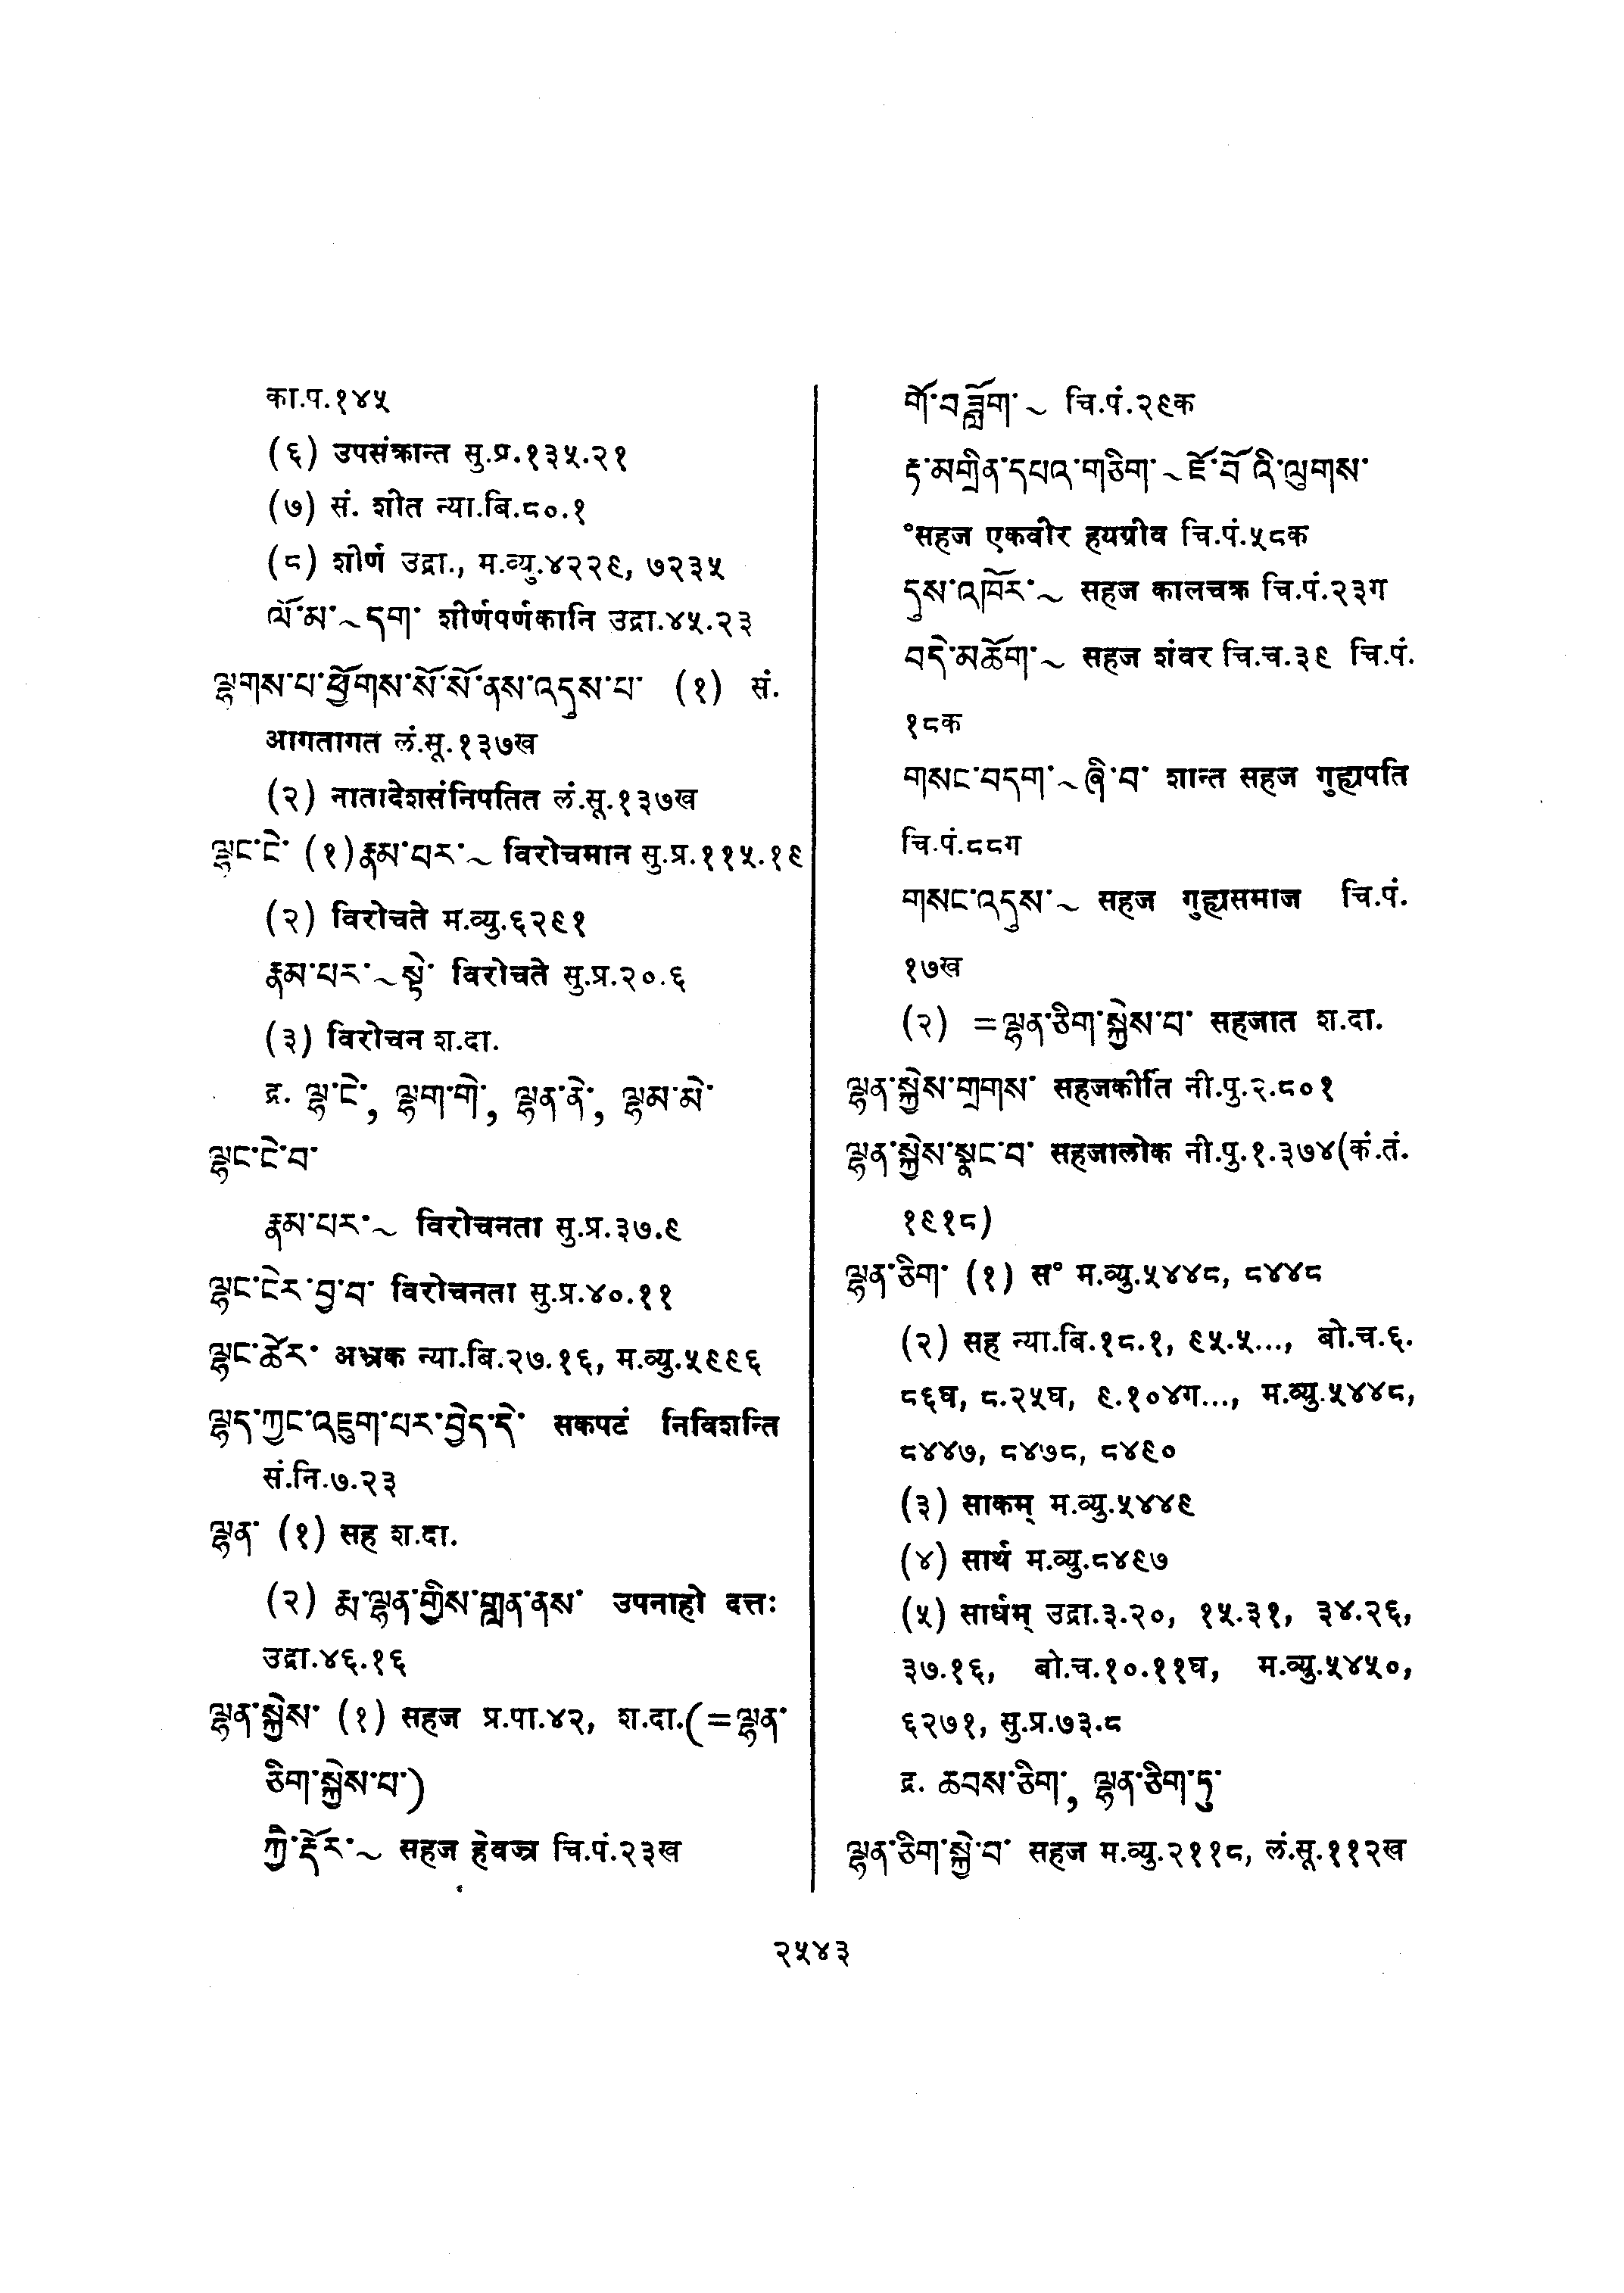 का.प.१४५
(६) उपसंक्रान्त सु.प्र.१३५.२१
(७) सं. शीत न्या.बि.८०.१
(८) शीर्ण उद्रा., म.व्यु.४२२९, ७२३५
ལོ་མ་~དག་ शीर्णपर्णकानि उद्रा.४५.२३
ལྷགས་པ་ཕྱོགས་སོ་སོ་ནས་འདུས་པ་ (१) सं.
आगतागत लं.सू.१३७ख
(२) नातादेशसंनिपतित लं.सू.१३७ख
ལྷང་ངེ་ (१) རྣམ་པར་~ विरोचमान सु.प्र.११५.१९
(२) विरोचते म.व्यु.६२९१
རྣམ་པར་~སྟེ་ विरोचते सु.प्र.२०.६
(३) विरोचन श.दा.
द्र. ལྷ་ངེ་, ལྷག་གེ་, ལྷན་ནེ་, ལྷམ་མེ་
ལྷང་ངེ་བ་
རྣམ་པར་~ विरोचनता सु.प्र.३७.९
ལྷང་ངེར་བྱ་བ་ विरोचनता सु.प्र.४०.११
ལྷང་ཚེར་ अभ्रक न्या.बि.२७.१६, म.व्यु.५९९६
ལྷད་ཀྱང་འཇུག་པར་བྱེད་དེ་ सकपटं निविशन्ति
सं.नि.७.२३
ལྷན་ (१) सह श.दा.
(२) རྨ་ལྷན་གྱིས་གླན་ནས་ उपनाहो दत्तः
उद्रा.४६.१६
ལྷན་སྐྱེས་ (१) सहज प्र.पा.४२, श.दा.(=ལྷན་
ཅིག་སྐྱེས་པ་)
ཀྱི་རྡོར་~ सहज हेवज्र चि.पं.२३ख
གོ་བཟློག་~ चि.पं.२९क
རྟ་མགྲིན་དཔའ་གཅིག་~ཇོ་བོ་འི་ལུགས་
°सहज एकवीर हयग्रीव चि.पं.५८क
དུས་འཁོར་~ सहज कालचक्र चि.पं.२३ग
བདེ་མཆོག་~ सहज शंवर चि.च.३९ चि.पं.
१८क
གསང་བདག་~ཞི་བ་ शान्त सहज गुह्यपति
चि.पं.८८ग
གསང་འདུས་~ सहज गुह्यसमाज चि.पं.
१७ख
(२) =ལྷན་ཅིག་སྐྱེས་པ་ सहजात श.दा.
ལྷན་སྐྱེས་གྲགས་ सहजकीर्ति नी.पु.२.८०१
ལྷན་སྐྱེས་སྣང་བ་ सहजालोक नी.पु.१.३७४(कं.तं.
१९१८)
ལྷན་ཅིག་ (१) स° म.व्यु.५४४८, ८४४८
(२) सह न्या.बि.१८.१, ९५.५..., बो.च.६.
८६घ, ८.२५घ, ९.१०४ग..., म.व्यु.५४४८,
८४४७, ८४७८, ८४९०
(३) साकम् म.व्यु.५४४९
(४) सार्थ म.व्यु.८४९७
(५) सार्धम् उद्रा.३.२०, १५.३१, ३४.२६,
३७.१६, बो.च.१०.११घ, म.व्यु.५४५०,
६२७१, सु.प्र.७३.८
द्र. ཆབས་ཅིག་, ལྷན་ཅིག་ཏུ་
ལྷན་ཅིག་སྐྱེ་བ་ सहज म.व्यु.२११८, लं.सू.११२ख
२५४३